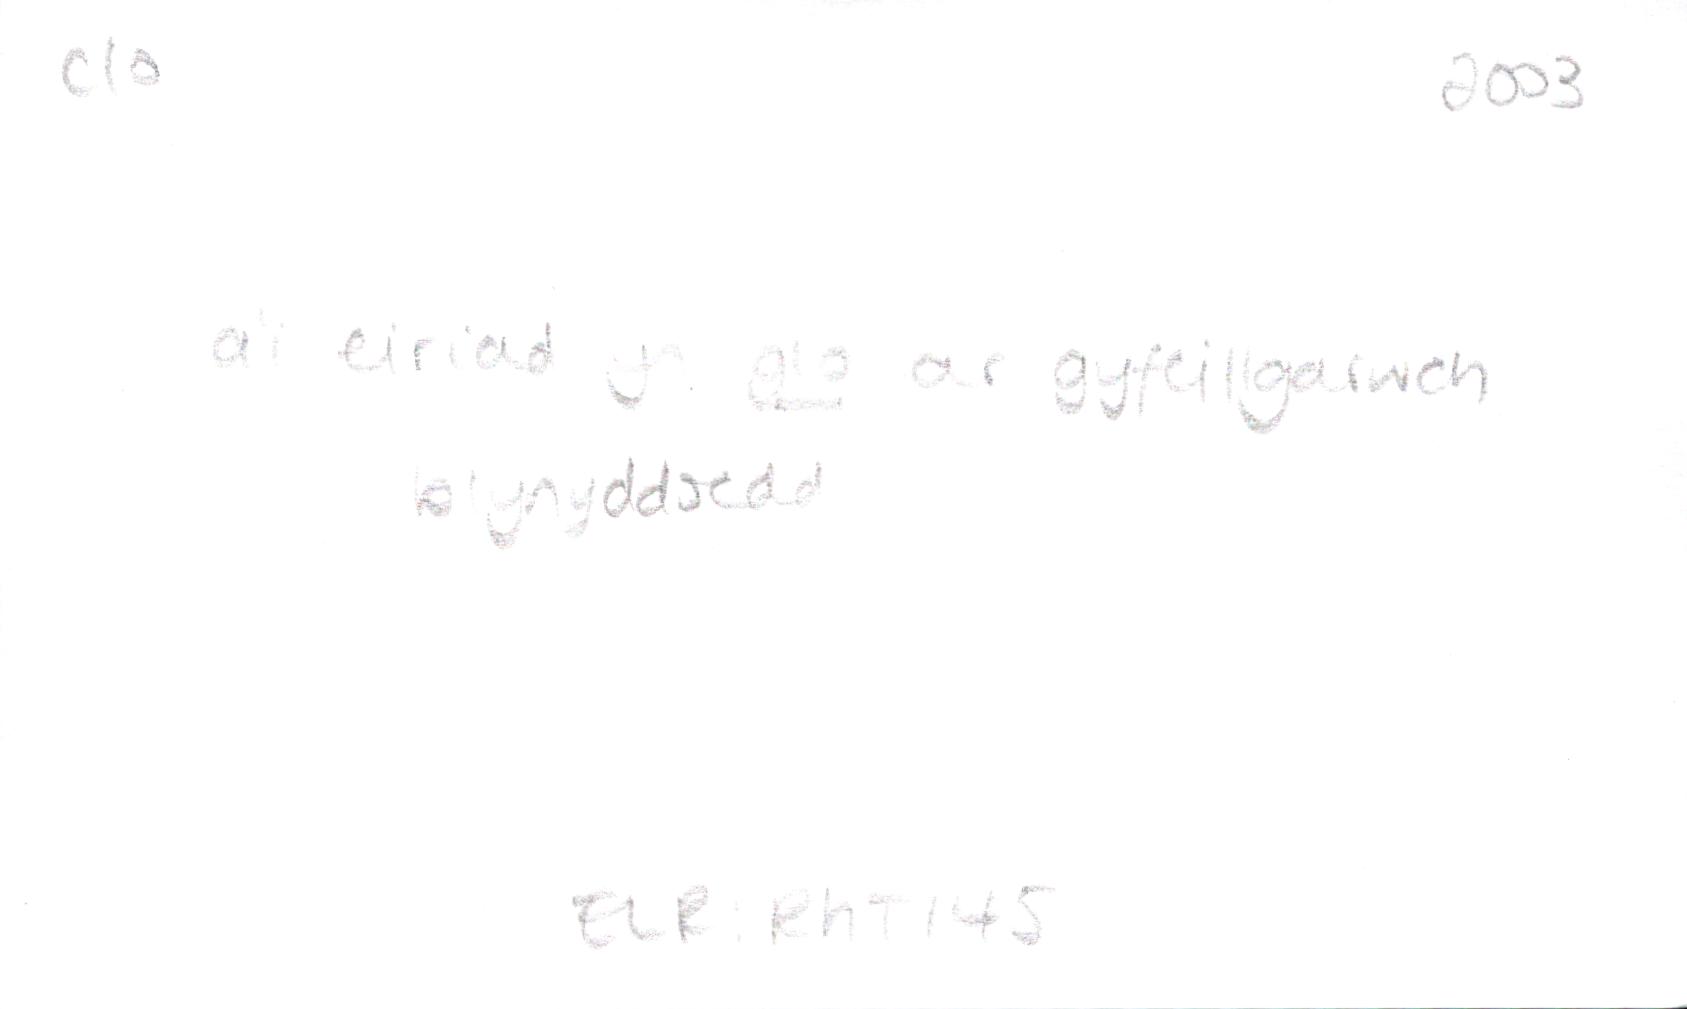 clo 2003
a'i eiriad yn glo ar gyfeillgarwch
blynyddoedd
ELR: RhT 145